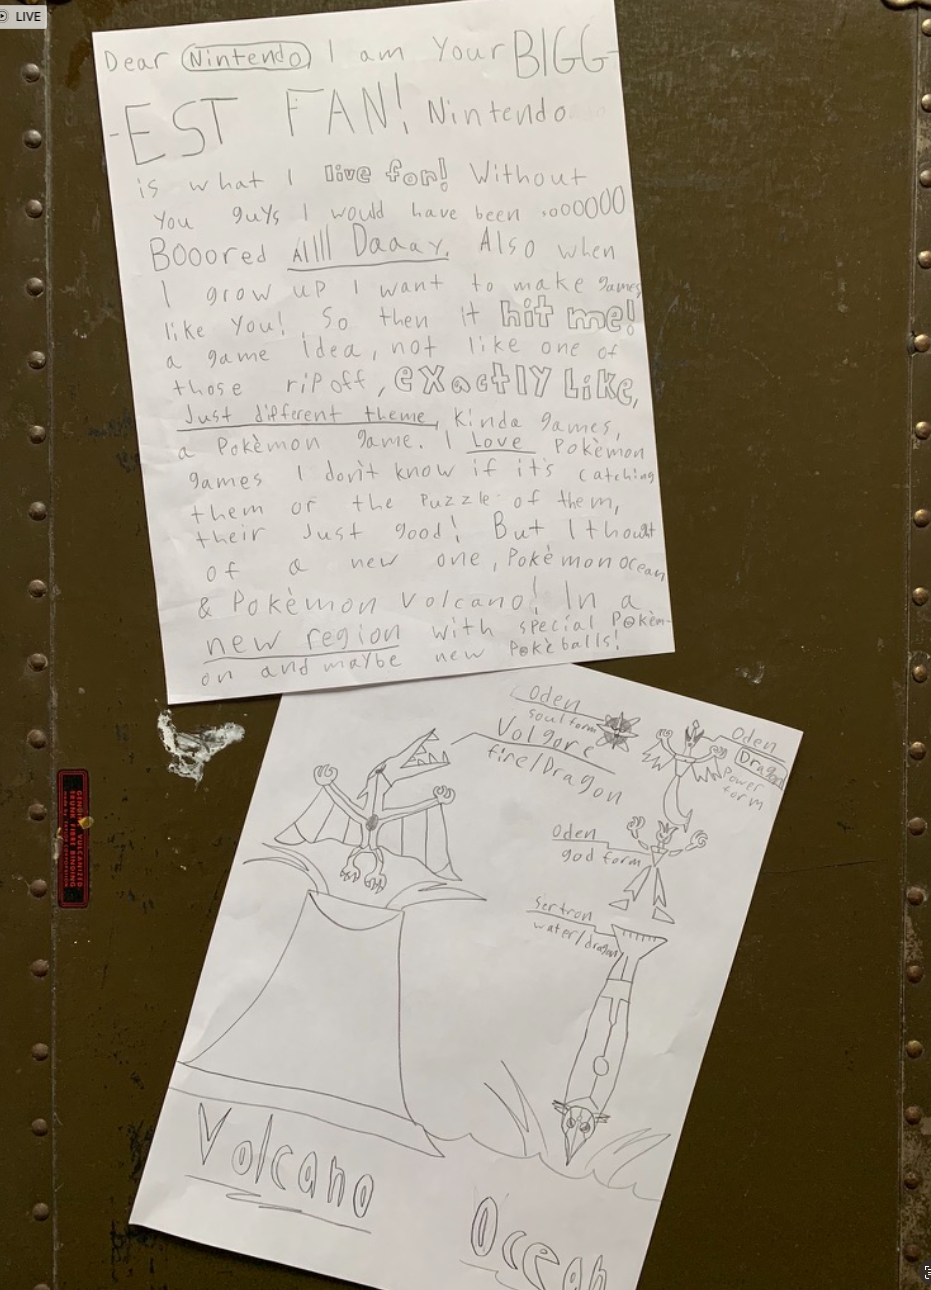 LIVE
Dear Nintendo I am Your BIGG-
-EST FAN! Nintendo
is what I live for! Without
You guys I would have been soooOOO
BOOored Allll Daaay. Also when
I grow up I want to make games
like You! So then it hit me!
a game idea, not like one of
those rip off, exactly Like,
Just different theme, Kinda games,
a Pokèmon game. I Love Pokèmon
games I don't know if it's catching
them or the Puzzle of them,
their Just good! But I thouat
of a new one, Pokèmon ocean
& Pokèmon Volcano! In a
new region with special Pokèm-
on and maybe new Pokèballs!
Oden
soul form
Volgore
fire/Dragon
Oden
Dragon
Power
form
Oden
god form
Sertron
water/dragon
GENUINE VULCANIZED
TRUNK FIBRE BINDING
Volcano
Ocean